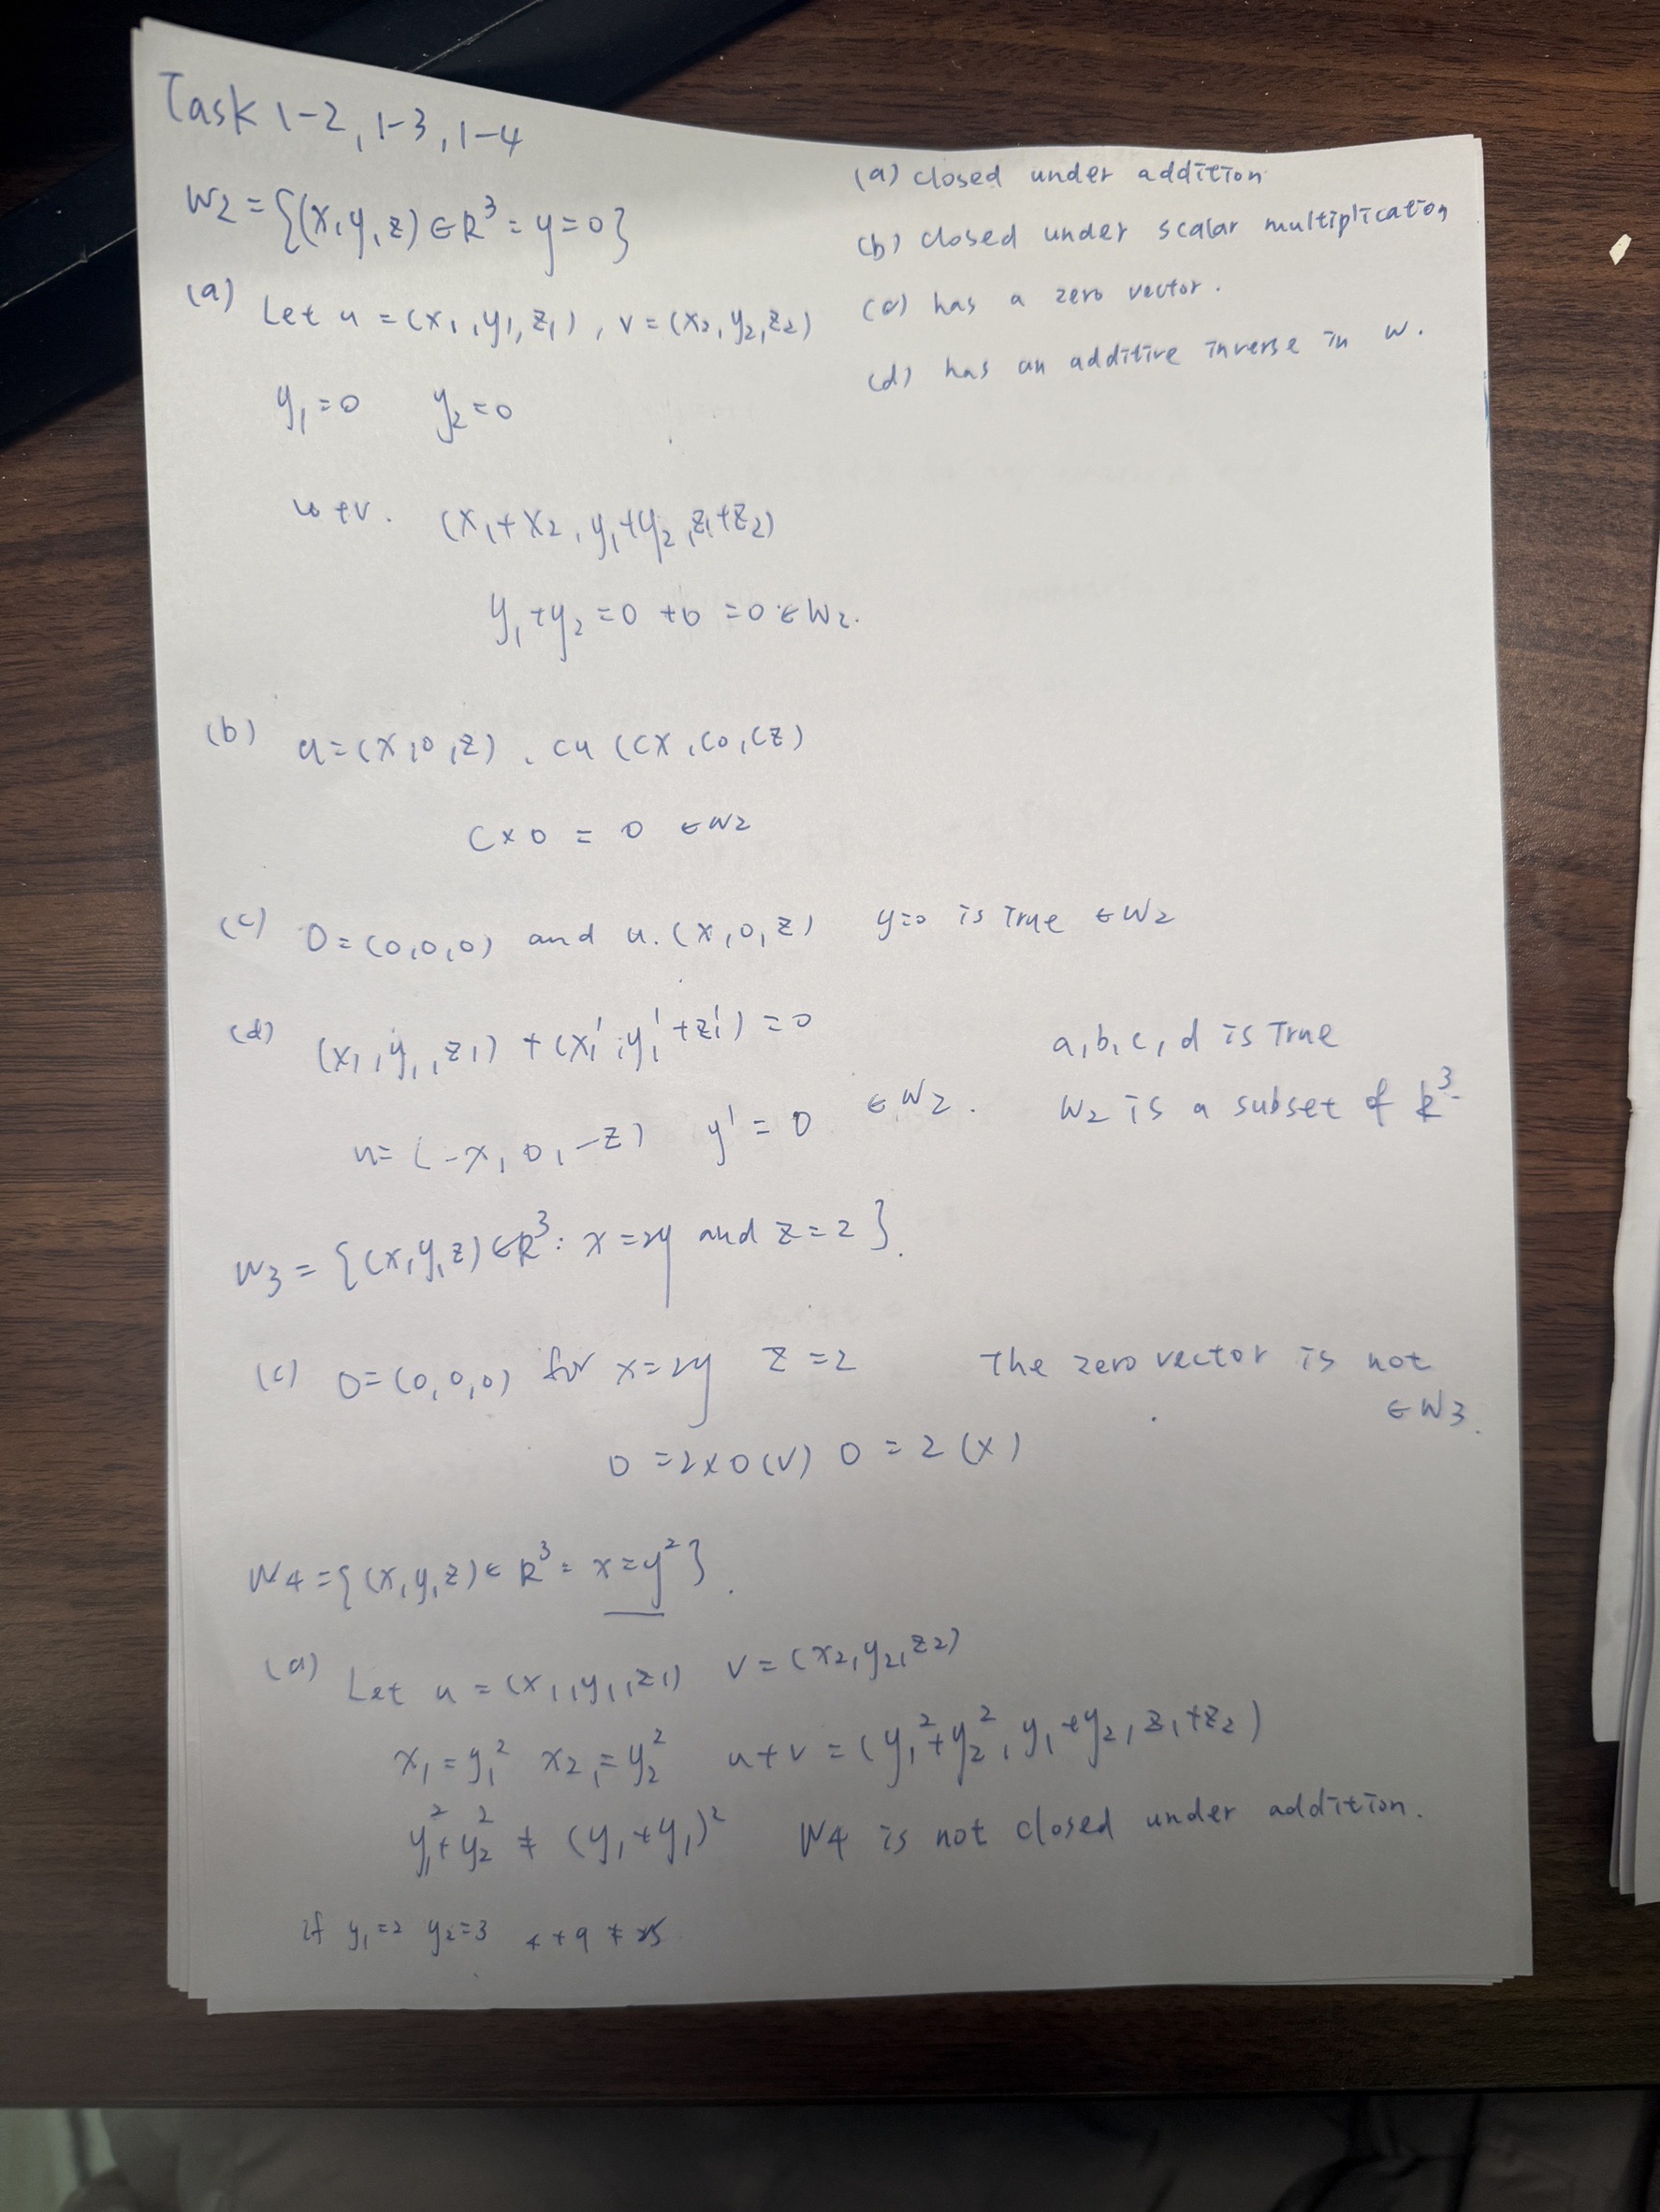 Task 1-2, 1-3, 1-4
(a) closed under addition
(b) closed under scalar multiplication
(c) has a zero vector.
(d) has an additive inverse in W.
W2 = {(x, y, z) ∈ R³ : y = 0}
(a) Let u = (x₁, y₁, z₁), v = (x₂, y₂, z₂)
y₁ = 0 y₂ = 0
u+v. (x₁+x₂, y₁+y₂, z₁+z₂)
y₁+y₂ = 0 + 0 = 0 ∈ W₂.
(b) u = (x, 0, z), cu (cx, c0, cz)
c × 0 = 0 ∈ W2
(c) 0 = (0, 0, 0) and u. (x, 0, z) y=0 is True ∈ W2
(d) (x₁, y₁, z₁) + (x₁', y₁' + z₁') = 0
u = (-x, 0, -z) y' = 0 ∈ W2.
a, b, c, d is True
W2 is a subset of R³.
W3 = {(x, y, z) ∈ R³ : x = 2y and z = 2}.
(c) 0 = (0, 0, 0) for x = 2y z = 2 The zero vector is not
∈ W3.
0 = 2×0 (v) 0 = 2 (x)
W4 = {(x, y, z) ∈ R³ : x = y²}.
(a) Let u = (x₁, y₁, z₁) v = (x₂, y₂, z₂)
x₁ = y₁² x₂ = y₂² u+v = (y₁²+y₂², y₁+y₂, z₁+z₂)
y₁²+y₂² ≠ (y₁+y₁)² W4 is not closed under addition.
if y₁=2 y₂=3 4+9 ≠ 25